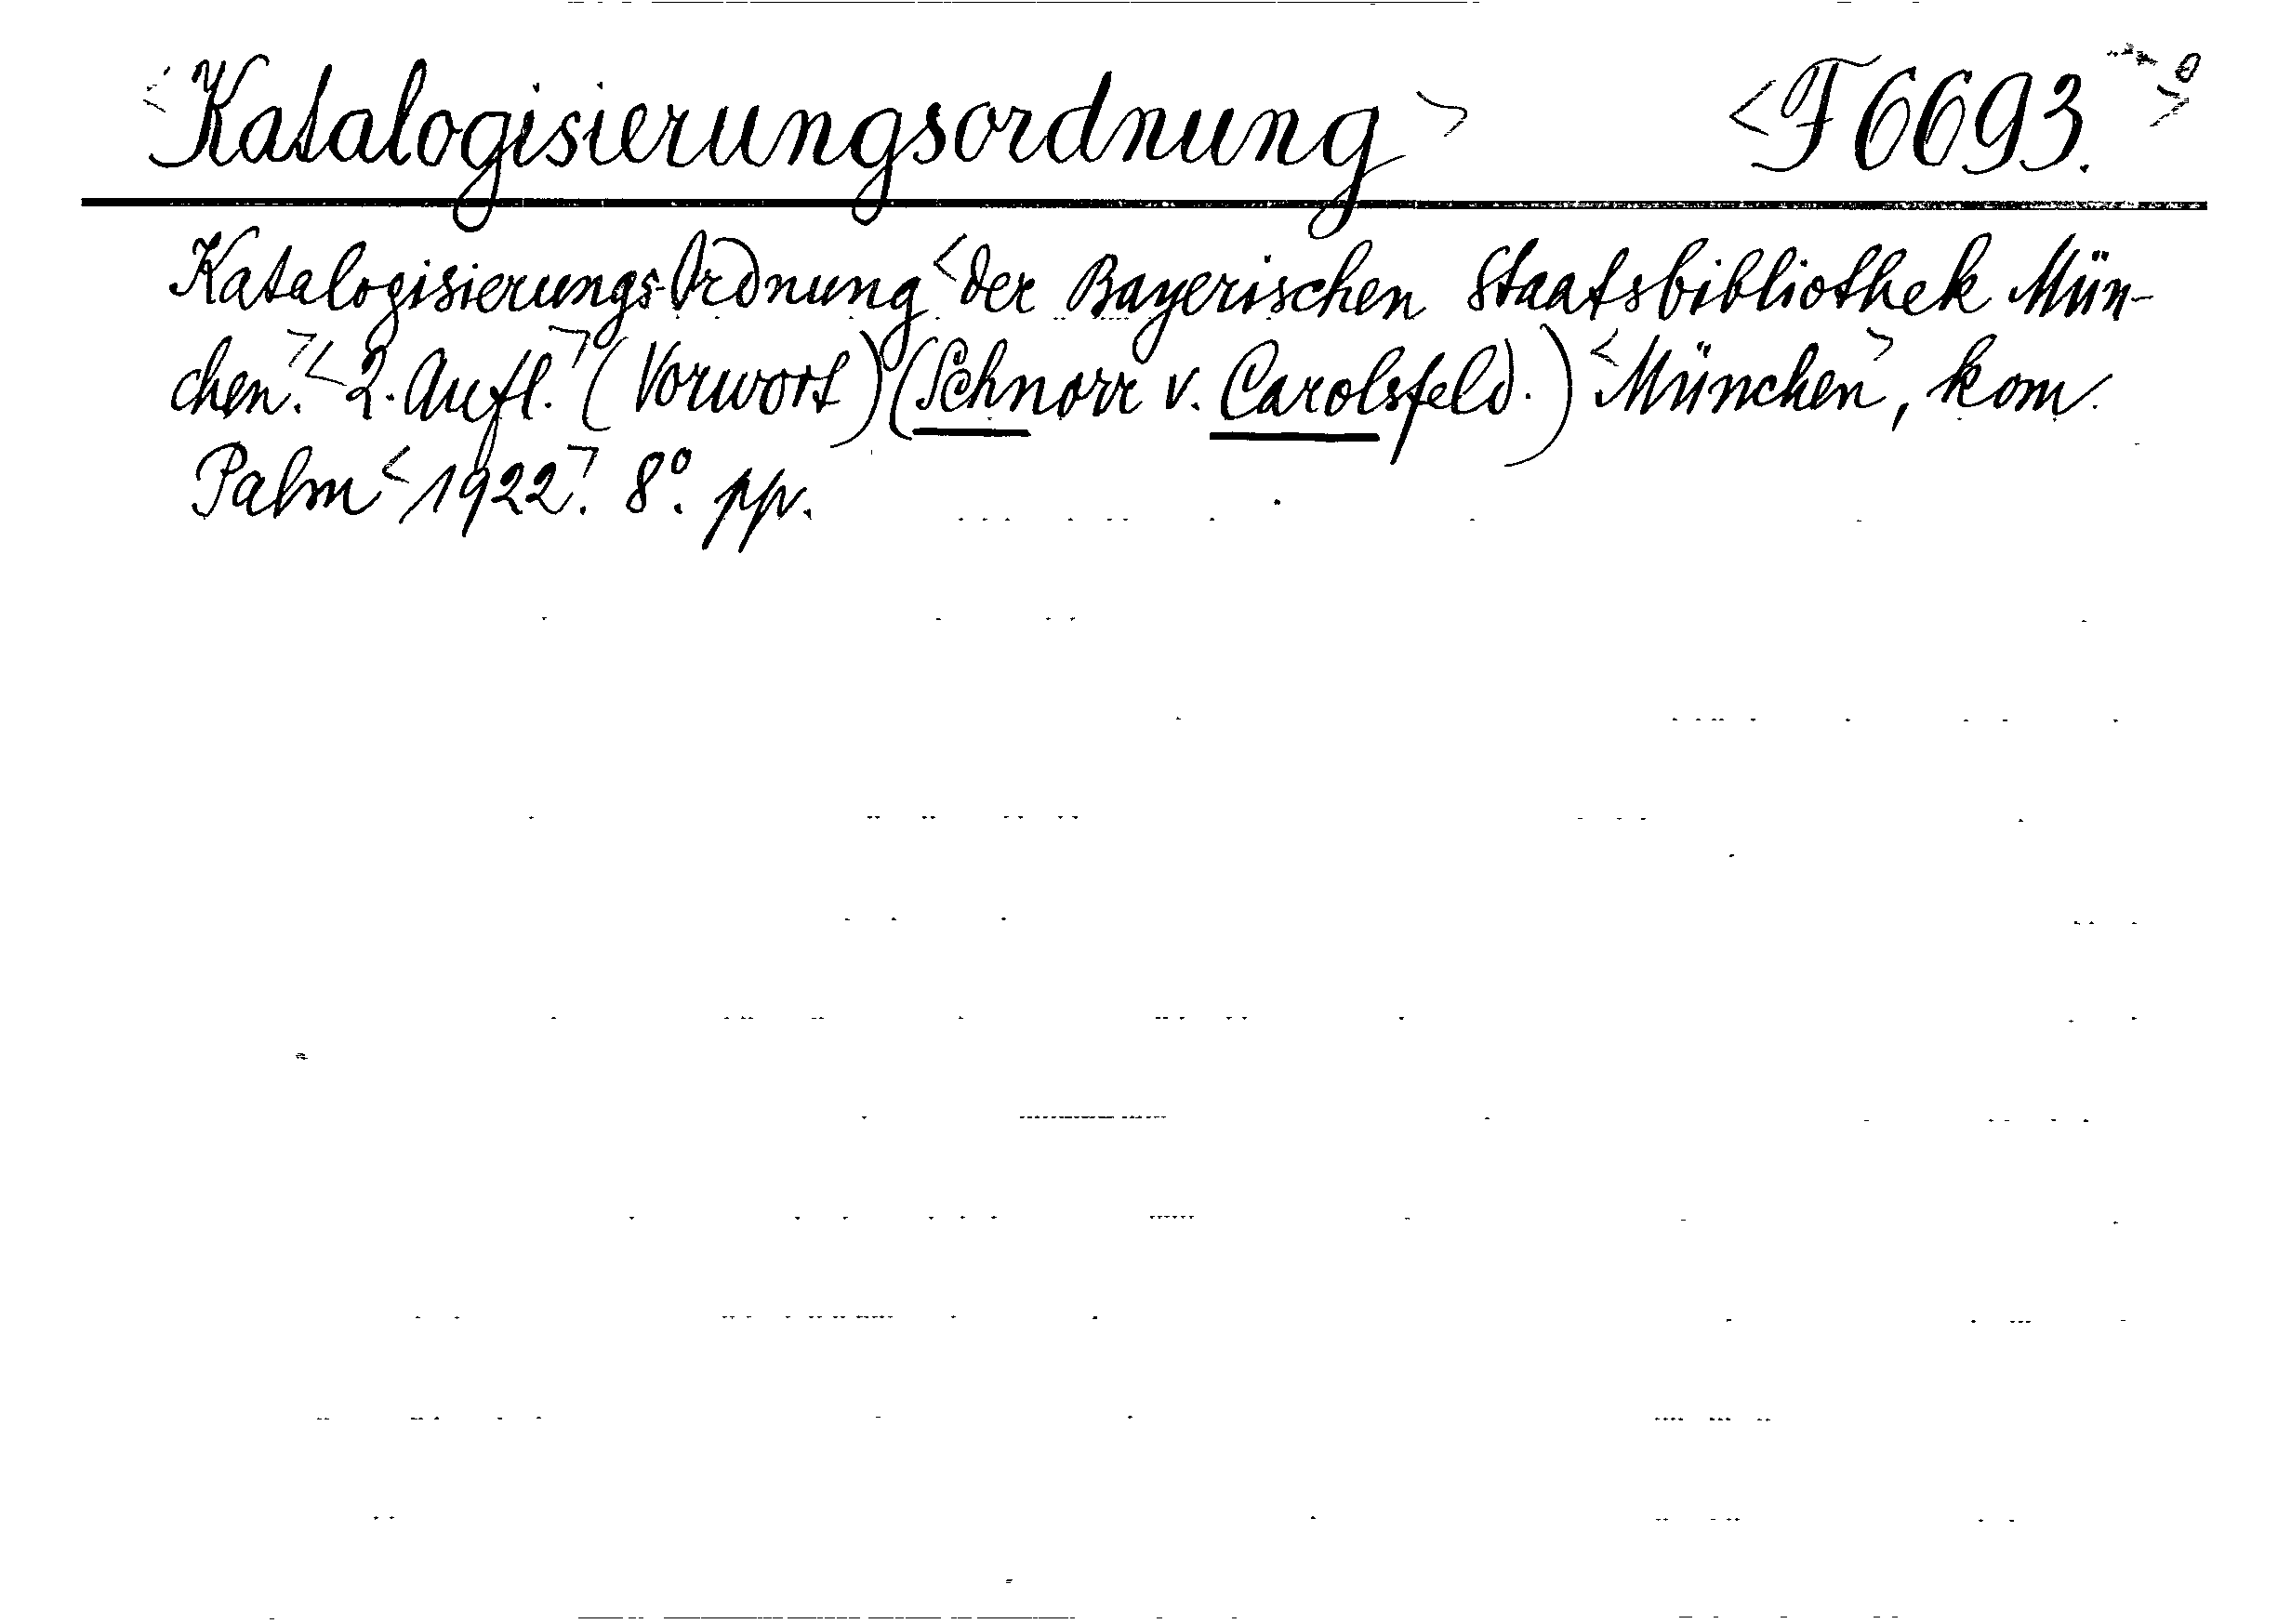 <Katalogisierungsordnung> <F 6693.>
Katalogisierungs-Ordnung <der Bayerischen Staatsbibliothek Mün-
chen.> <2. Aufl.> (Vorwort) (Schnorr v. Carolsfeld.) <München>, kom.
Palm <1922>. 8°. pp.